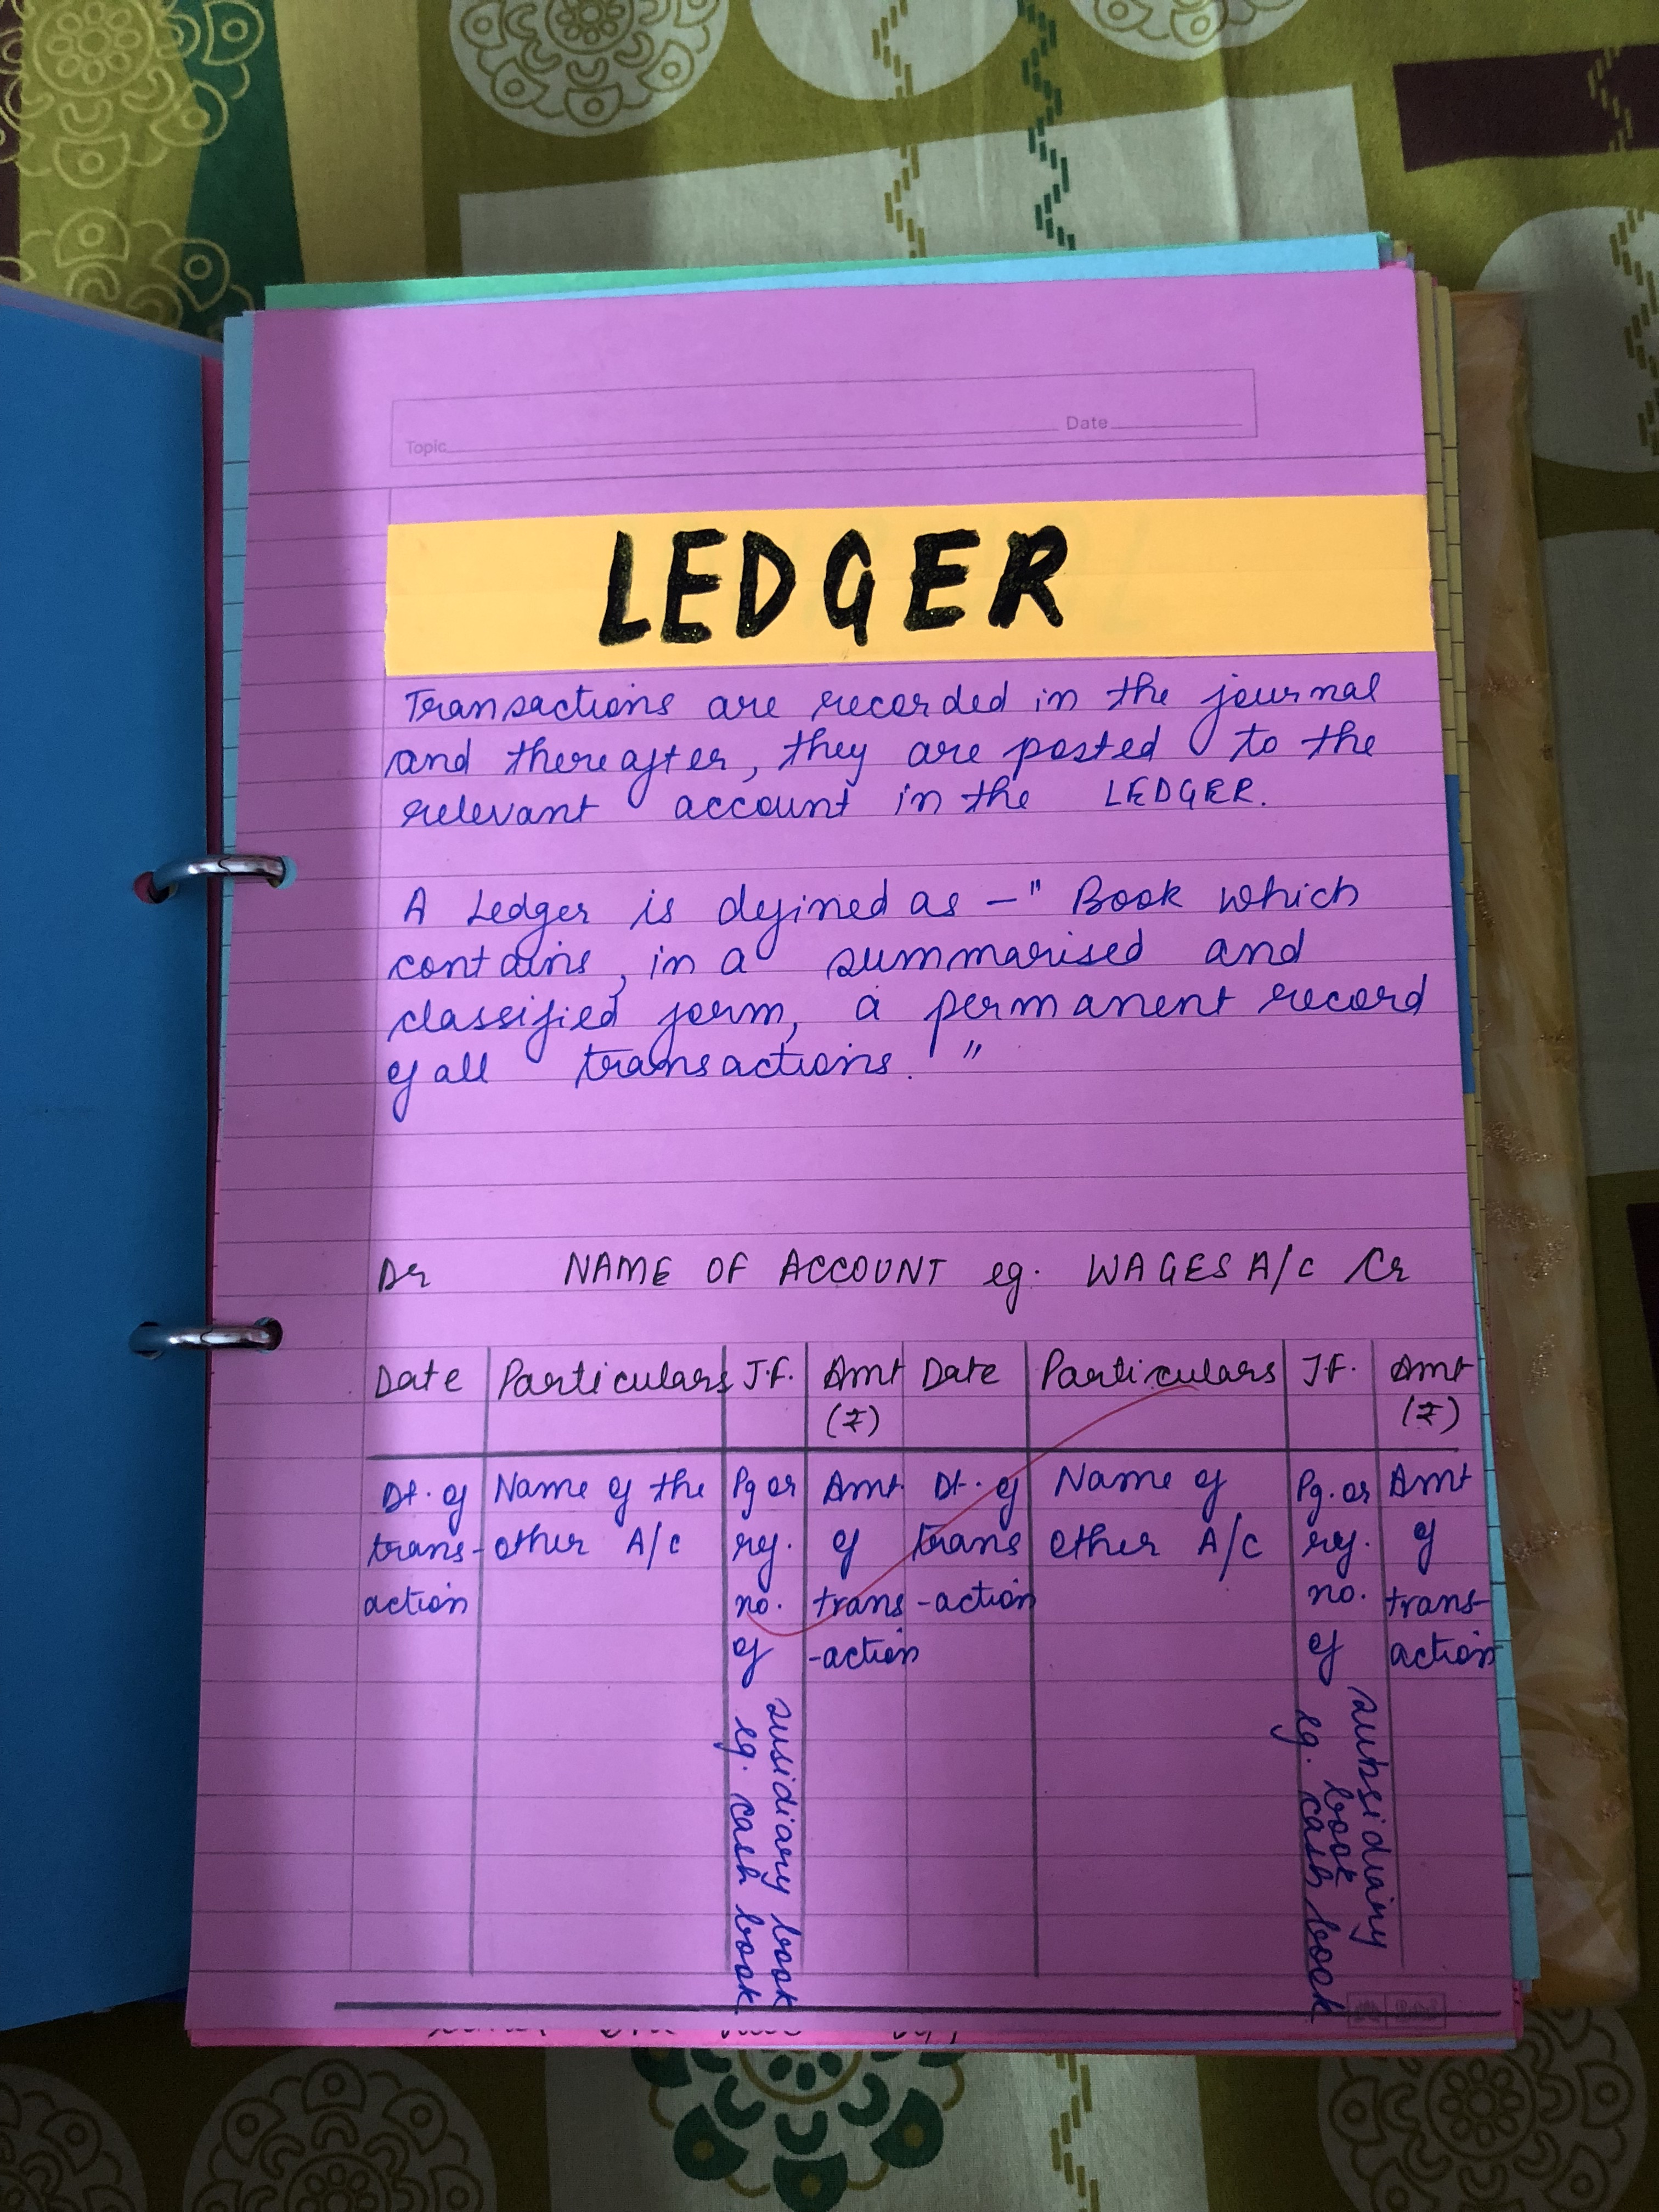 Topic Date
LEDGER
Transactions are recorded in the journal
and thereafter, they are posted to the
relevant account in the LEDGER.
A Ledger is defined as - " Book which
contains, in a summarised and
classified form, a permanent record
of all transactions. "
Dr NAME OF ACCOUNT eg. WAGES A/C Cr
Date Particulars J.F. Amt Date Particulars J.F. Amt
(₹) (₹)
Dt. of Name of the Pg or Amt Dt. of Name of Pg. or Amt
trans- other A/c ref. of trans other A/C ref. of
action no. trans -action no. trans-
of -action of action
susidiary book
eg. cash book
subsidiary
book
eg. cash book